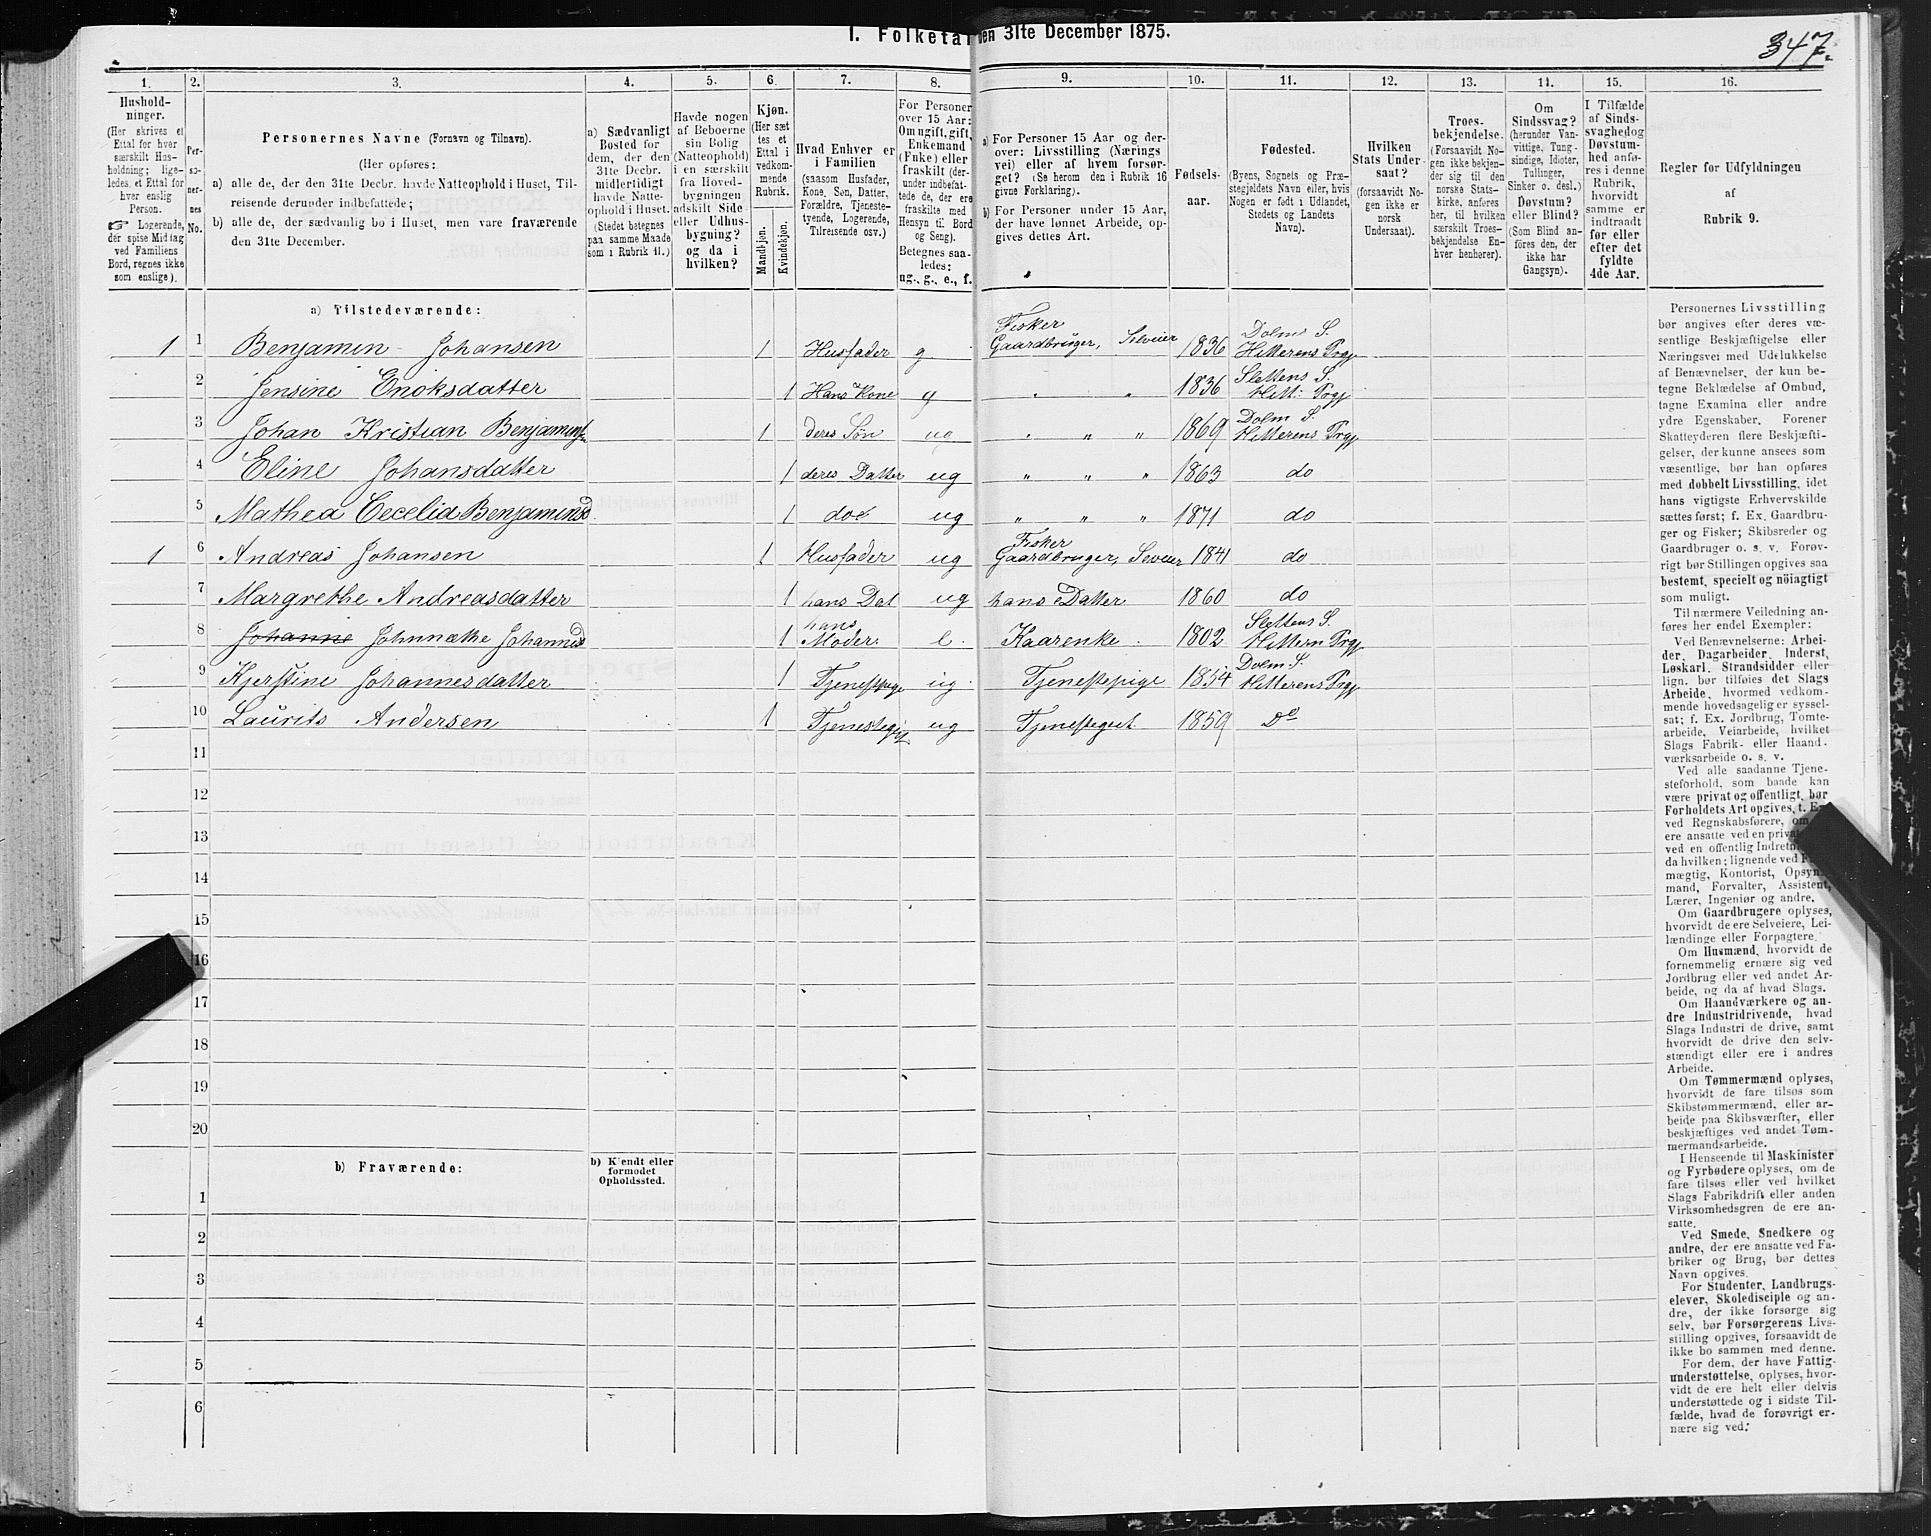 I. Folketal den 31te December 1875.
347.
1.
Hushold-
ninger.
(Her skrives et
Ettal for hver
særskilt Hus-
holdning; lige-
ledes et Ettal for
hver enslig
Person.
☞ Logerende,
der spise Middag
ved Familiens
Bord, regnes ikke
som enslige).
2.
Per-
so-
ner-
nes
No.
3.
Personernes Navne (Fornavn og Tilnavn).
(Her opføres:
a) alle de, der den 31te Decbr. havde Natteophold i Huset, Til-
reisende derunder indbefattede;
b) alle de, der sædvanlig bo i Huset, men vare fraværende
den 31te December.
4.
a) Sædvanligt
Bosted for
dem, der den
31te Decbr.
midlertidigt
havde Natte-
ophold i Huset.
(Stedet betegnes
paa samme Maade
som i Rubrik 11.)
5.
Havde nogen
af Beboerne
sin Bolig
(Natteophold)
i en særskilt
fra Hoved-
bygningen
adskilt Side-
eller Udhus-
bygning?
og da i
hvilken?
6.
Kjøn.
(Her sæt
tes et
Ettal i
vedkom-
mende
Rubrik.
Mandkjøn.
Kvindekjøn.
7.
Hvad Enhver er
i Familien
(saasom Husfader,
Kone, Søn, Datter,
Forældre, Tjeneste-
tyende, Logerende,
Tilreisende osv.)
8.
For Personer
over 15 Aar:
Om ugift, gift,
Enkemand
(Enke) eller
fraskilt (der-
under indbefat-
tede de, der ere
fraskilte med
Hensyn til Bord
og Seng).
Betegnes saa-
ledes:
ug., g., e., f.
9.
a) For Personer 15 Aar og der-
over: Livsstilling (Nærings
vei) eller af hvem forsør-
get? (Se herom den i Rubrik 16
givne Forklaring).
b) For Personer under 15 Aar,
der have lønnet Arbeide, op-
gives dettes Art.
10.
Fødsels-
aar.
11.
Fødested.
(Byens, Sognets og Præ-
stegjeldets Navn eller, hvis
Nogen er født i Udlandet,
Stedets og Landets
Navn).
12.
Hvilken
Stats Under-
saat?
(forsaavidt No-
gen ikke er
norsk
Undersaat).
13.
Troes-
bekjendelse.
(Forsaavidt No-
gen ikke bekjen-
der sig til den
norske Stats-
kirke, anføres
her, til hvilken
særskilt Troes-
bekjendelse En-
hver henhører).
14.
Om
Sindssvag?
(herunder Van-
vittige, Tung-
sindige, Idioter,
Tullinger,
Sinker o. desl.)
Døvstum?
eller Blind?
(Som Blind an-
føres den, der
ikke har
Gangsyn).
15.
I Tilfælde
af Sinds-
svaghed og
Døvstum-
hed anfø-
res i denne
Rubrik,
hvorvidt
samme er
indtraadt
før eller
efter det
fyldte
4de Aar.
16.
Regler for Udfyldningen
af
Rubrik 9.
a) Tilstedeværende:
1 1 Benjamin Johansen 1 Husfader g Fisker Gaardbruger, Selveier 1836 Dolms S. Hitterens Prgj
2 Jensine Enoksdatter 1 Hans Kone g " " 1836 Slettens S. Hitt: Prgj
3 Johan Kristian Benjaminsen 1 deres Søn ug " " " 1869 Dolm S. Hitterens Prgj
4 Eline Johansdatter 1 deres Datter ug " " " 1863 do
5 Mathea Cecelia Benjaminsd. 1 do ug " " " 1871 do
1 6 Andreas Johansen 1 Husfader ug Fisker Gaardbruger, Selveier 1841 do
7 Margrethe Andreasdatter 1 hans Dat ug hans Datter 1860 do
8 Johanne Johnnæthe Johannesd 1 hans Moder. e. Kaarenke. 1802 Slettens S. Hittern Prgj
9 Kjerstine Johannesdatter 1 Tjenestpige ug. Tjenestepige 1854 Dolm S. Hitterens Prgj
10 Laurits Andersen 1 ug Tjenestegut 1859 Do
11
12
13
14
15
16
17
18
19
20
b) Fraværende:
b) Kjendt eller
formodet
Opholdssted.
1
2
3
4
5
6
Personernes Livsstilling
bør angives efter deres væ-
sentlige Beskjæftigelse eller
Næringsvei med Udelukkelse
af Benævnelser, der kun be-
tegne Beklædelse af Ombud,
tagne Examina eller andre
ydre Egenskaber. Forener
Skatteyderen flere Beskjæfti-
gelser, der kunne ansees som
væsentlige, bør han opføres
med dobbelt Livsstilling, idet
hans vigtigste Erhvervskilde
sættes først; f. Ex. Gaardbru-
ger og Fisker; Skibsreder og
Gaardbruger o. s. v. Forøv-
rigt bør Stillingen opgives saa
bestemt, specielt og nöiagtigt
som muligt.
Til nærmere Veiledning an-
føres her endel Exempler:
Ved Benævnelserne: Arbei-
der, Dagarbeider, Inderst,
Løskarl, Strandsidder eller
lign. bør tilføies det Slags
Arbeide, hvormed vedkom-
mende hovedsagelig er syssel-
sat; f. Ex. Jordbrug, Tomte-
arbeide, Veiarbeide, hvilket
Slags Fabrik- eller Haand-
værksarbeide o. s. v.
Ved alle saadanne Tjene-
steforhold, som baade kan
være privat og offentligt, bør
Forholdets Art opgives, t. Ex.
ved Regnskabsførere, om
ere ansatte ved en privat
ved en offentlig Indretn
da hvilken; lignende ved F
mægtig, Kontorist, Opsyns
mand, Forvalter, Assistent,
Lærer, Ingeniør og andre.
Om Gaardbrugere oplyses,
hvorvidt de ere Selveiere, Lei-
lændinge eller Forpagtere.
Om Husmænd, hvorvidt de
fornemmelig ernære sig ved
Jordbrug eller ved andet Ar-
beide, og da af hvad Slags.
Om Haandværkere og an-
dre Industridrivende, hvad
Slags Industri de drive, samt
hvorvidt de drive den selv-
stændigt eller ere i andres
Arbeide.
Om Tømmermænd oplyses,
hvorvidt de fare tilsøs som
Skibstømmermænd, eller ar-
beide paa Skibsværfter, eller
beskjæftiges ved andet Tøm-
mermandsarbeide.
I Henseende til Maskinister
og Fyrbødere oplyses, om de
fare tilsøs eller ved hvilket
Slags Fabrikdrift eller anden
Virksomhedsgren de ere an-
satte.
Ved Smede, Snedkere og
andre, der ere ansatte ved Fa-
briker og Brug, bør dettes
Navn opgives.
For Studenter, Landbrugs-
elever, Skoledisciple og an-
dre, der ikke forsørge sig
selv, bør Forsørgerens Livs-
stilling opgives, forsaavidt de
ikke bo sammen med denne.
For dem, der have Fattig-
understøttelse, oplyses, hvor-
vidt de ere helt eller delvis
understøttede og i sidste Til-
fælde, hvad de forøvrigt er-
nære sig ved.